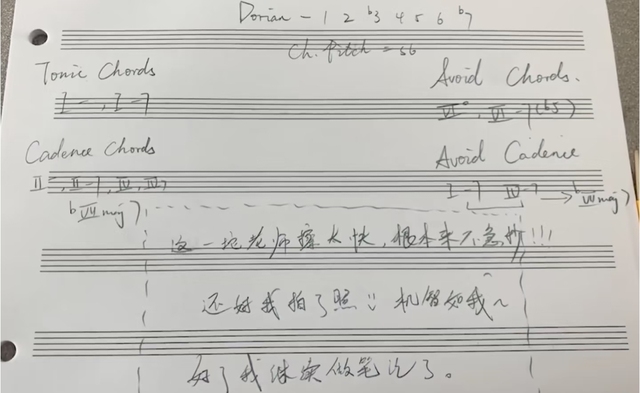 Dorian - 1 2 b3 4 5 6 b7
Ch. Pitch = s6
Tonic Chords
Avoid Chords.
I-, I-7
VI°, VI-7(b5)
Cadence Chords
Avoid Cadence
II-, II-7, IV, IV7
I-7 IV-7 → bVII maj7
bVII maj7
这一坨老师擦太快,根本来不急抄!!!
还好我拍了照 机智如我~
好了我继续做笔记了。